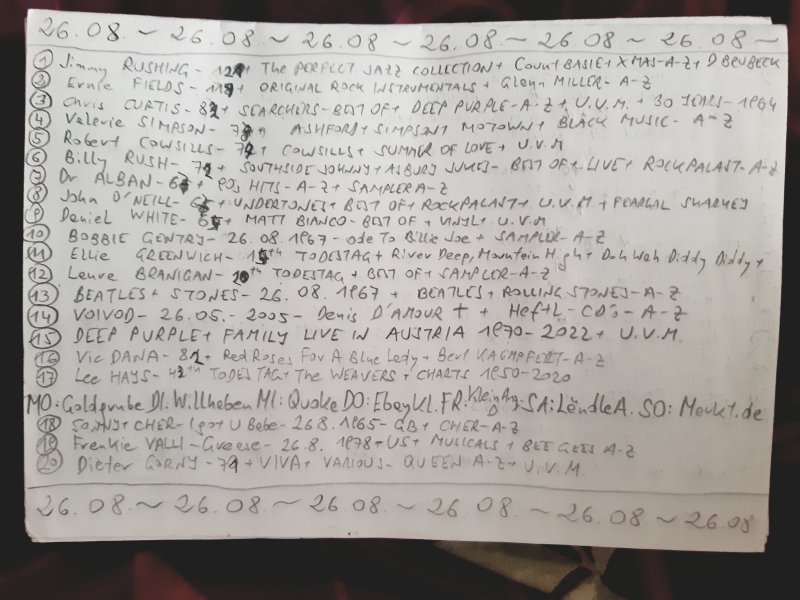 26.08. ~ 26.08 ~ 26.08 ~ 26.08 ~ 26.08 ~ 26.08 ~
① Jimmy RUSHING - + The PERFECT JAZZ COLLECTION + Count BASIE + XMAS - A-Z + D BRUBECK
② Ernie FIELDS - + ORIGINAL ROCK INSTRUMENTALS + Glenn MILLER - A-Z
③ Chris CURTIS - + SEARCHERS - BEST OF + DEEP PURPLE - A-Z + U.V.M. + 30 JEARS - 1964
④ Valerie SIMPSON - + ASHFORD + SIMPSON MOTOWN + BLACK MUSIC - A-Z
⑤ Robert COWSILLS - + COWSILLS + SUMMER OF LOVE + U.V.M
⑥ Billy RUSH - + SOUTHSIDE JOHNNY + ASBURY JUKES - BEST OF + LIVE + ROCKPALAST - A-Z
⑦ Dr ALBAN - + 90s HITS - A-Z + SAMPLER A-Z
⑧ John O'NEILL - + UNDERTONES + BEST OF + ROCKPALAST + U.V.M + FEARGAL SHARKEY
⑨ Daniel WHITE - + MATT BIANCO - BEST OF + VINYL + U.V.M
⑩ BOBBIE GENTRY - 26.08.1967 - Ode To Billie Joe + SAMPLER - A-Z
⑪ Ellie GREENWICH - TODESTAG + River Deep, Mountain High + Doh Wah Diddy Diddy +
⑫ Laura BRANIGAN - TODESTAG + BEST OF + SAMPLER - A-Z
⑬ BEATLES + STONES - 26.08.1967 + BEATLES + ROLLING STONES - A-Z
⑭ VOIVOD - 26.05. - 2005 - Denis D'AMOUR † + Heft - CD's - A-Z
⑮ DEEP PURPLE + FAMILY LIVE IN AUSTRIA 1970 - 2022 + U.V.M.
⑯ Vic DANA - + Red Roses For A Blue Lady + Bert KAEMPFERT - A-Z
⑰ Lee HAYS - TODESTAG + The WEAVERS + CHARTS 1950-2020
MO: Goldgrube DI. Willhaben MI: Quoka DO: Ebay Kl. FR: Klein Anz. D SA: Ländle A. SO: Markt.de
⑱ SONNY + CHER - I got U Babe - 26.8.1965 - GB + CHER - A-Z
⑲ Frankie VALLI - Grease - 26.8. 1978 + US + MUSICALS + BEE GEES A-Z
⑳ Dieter GORNY - + VIVA + VARIOUS - QUEEN A-Z + U.V.M.
26.08. ~ 26.08 ~ 26.08 ~ 26.08 ~ 26.08 ~ 26.08